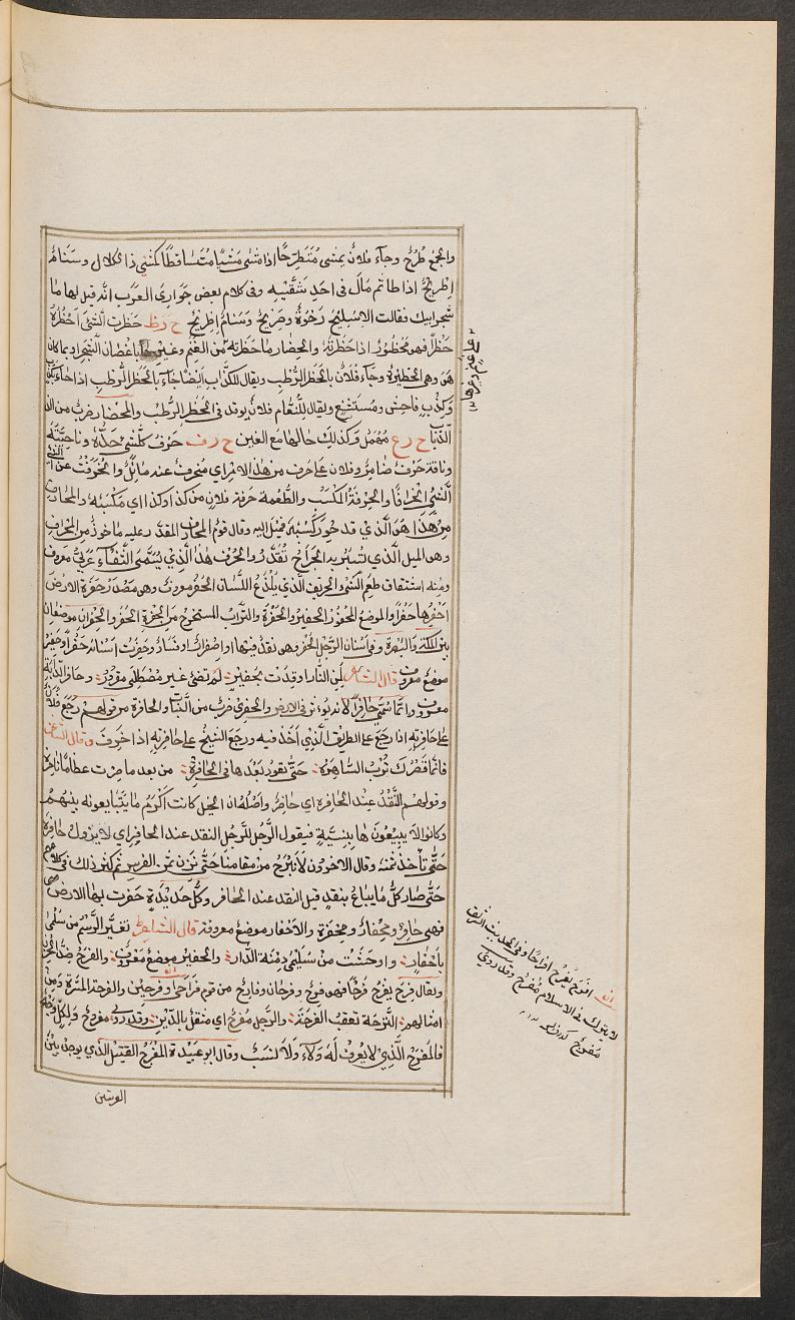 والجمع طُرُح وجاء فلانٌ يمشى مُتَطَرِّحًا اذا مشى مَشْيًا مُتَساقِطًا كمَشْيِ ذا الكلال وسَنَامٌ
اِطْرِيحٌ اذا طال ثم مَالَ فى احَدِ شَقَّيْهِ وفى كلام بعض جَوارِى العَرَب انه قيل لها ما
شجر ابيك فقالت الاسليح رَغْوَةٌ وصَرِيحٌ وسَنَامٌ اِطْرِيحٌ ح ر ظ حَظَرت الشئ اَحْظُرُهُ
حَظْرًا فهو محْظُورٌ اذا حَظَرتَهُ والحِظار ما حَظَرتَهُ من الغنم وغيرها باغصان الشجر او بما كان
هَن وهى الحَظِيرَة وجَاء فلانٌ بالحَظِر الرَّطْب ويقال للكذَّاب ايضا جَاءَ بالحَظِر الرَّطْب اذا جاء
وكَذِبٍ فاحِشٍ ومُستَشْنَع ويقال للنَّمَّام فلانٌ يوقد فى الحَظِر الرَّطْب والحِظار ضربٌ من
الذباب ح ر ع مُهْمَلٌ وكذلك حالهما مع الغين ح ر ف حَرْف كلِّ شئٍ حَدُّهُ وناحِيَتُهُ
وناقة حَرْفٌ ضامِرٌ وفلان على حَرف من هذا الامر اى مُنحرفٌ عنه مائِلٌ وانحَرَفْتُ عن
الشئِ انحِرافًا والحِرْفةُ المَكْسَبُ والطُّعمة حرفة فلانٍ من كذا وكذا اى مَكْسَبُهُ والمحارَف
من هذا هو الَّذى قد حُورِفَ كَسْبُهُ فمِيْلَ اليه وقال قوم المحارَف المقدَّر عليه مأخوذٌ من المِحْراف
وهى الميل الَّذى تُسْبَر به الجراح تُقَدَّر والحُرْف هذا الَّذِي يُسَمَّى الثُّفَّاءَ عَربىٌّ معروف
ومنه اشتقاق طعم الشئ والحِرّيف الَّذي يَلْذَعُ اللِّسان الحَفْر معروفٌ وهو مَصْدَر حَفَرَة الارض
احْفِرُها حَفْرًا والموضع المحفور الحَفِير والحُفْرَة والتُّراب المستخرج من الحُفْرة الحَفَر والحَفَران موضعان
بين الكلَّة والبَصْرة وفى اسْنان الرَّجل الحَفْر وهو نَقَدٌ فيها او اصْفِرارٌ او فَسَادٌ وحَفَرَت اسْنانه حَفْرًا وحَفِير
موضع معروف قال الشاعر لِمَن النَّار اوقدَت بحَفِيْرٍ لم تُضئ غير مُصْطَلًى مقرورُ وحافِر الدَّابة
معروف وانَّما سُمِّي حافِرًا لانه يُؤثر فى الارض والحِفْرى ضربٌ من النَّبات والحافرة من قولهم رَجَعَ فلانٌ
على حافِرَتِهِ اذا رَجَعَ على الطريق الَّذِي اَخَذَ فيه ورجع الشيخُ على حافِرَتِهِ اذا خَرِفَ وقال الشاعر
فانَّما قَصْرُك تُرْبُ السَّاهِرَة حتَّى تعود بَعْدَها فى الحافِرَة من بعد ما صِرتَ عظامًا ناخِرة
وقولهم النَّقْدُ عند الحافرة اى حاضِر واصْلُهُ ان الخيل كانت اَكْرَم ما يَتَبايعونه بينهم
وكانوا لا يبيعُونَها بِنِسِيَّةٍ فيقول الرَّجُل للرَّجُل النقد عند الحافر اى لا يزول حافِرُهُ
حتَّى تأخذ ثمنه وقال الاخرون لا نَبْرَحُ من مقامنا حتَّى نَزِنَ ثمن الفرس ثم كثر ذلك فى كلامهم
حتَّى صار كلُّ ما يباعُ بنقدٍ قيل النقد عند الحافر وكلُّ حديدَةٍ حفَرت بها الارض
فهى حافِرٌ ومِحْفارٌ ومِحْفَرة والاحْفار موضع معروفة قال الشاعر تغيَّر الرَّسْم من سَلْمٰى
بأحْفارٍ واوحَشَتْ من سُلَيْمٰى دِمْنَة الدَّار والحفير موضع مَعْروف والفرح ضدُّ الحُزن
ويقال فَرِحَ يفرَح فَرَحًا فهو فَرِحٌ وفرحان وفارِحٌ من قوم فَرَاحَى وفرحِين والفرحة المسَرَّة ومن
امثالهم التَّرْحَة تعقب الفَرْحَة والرَّجل مُفْرَحٌ اى مثقلٌ بالدَّين وقد روى مفروحٌ
فالمفرَح الَّذِى لا يُعرفُ لَه وَلَاءٌ ولَا نَسَبٌ وقال ابو عبَيْدة المفْرَحُ القتيل الَّذي يوجد بين
القريتين
افرح يُفرِح افراحًا وفى الحديث الشريف
لا يترك فى الاسلام مُفرَح وقد روى
مَفروح